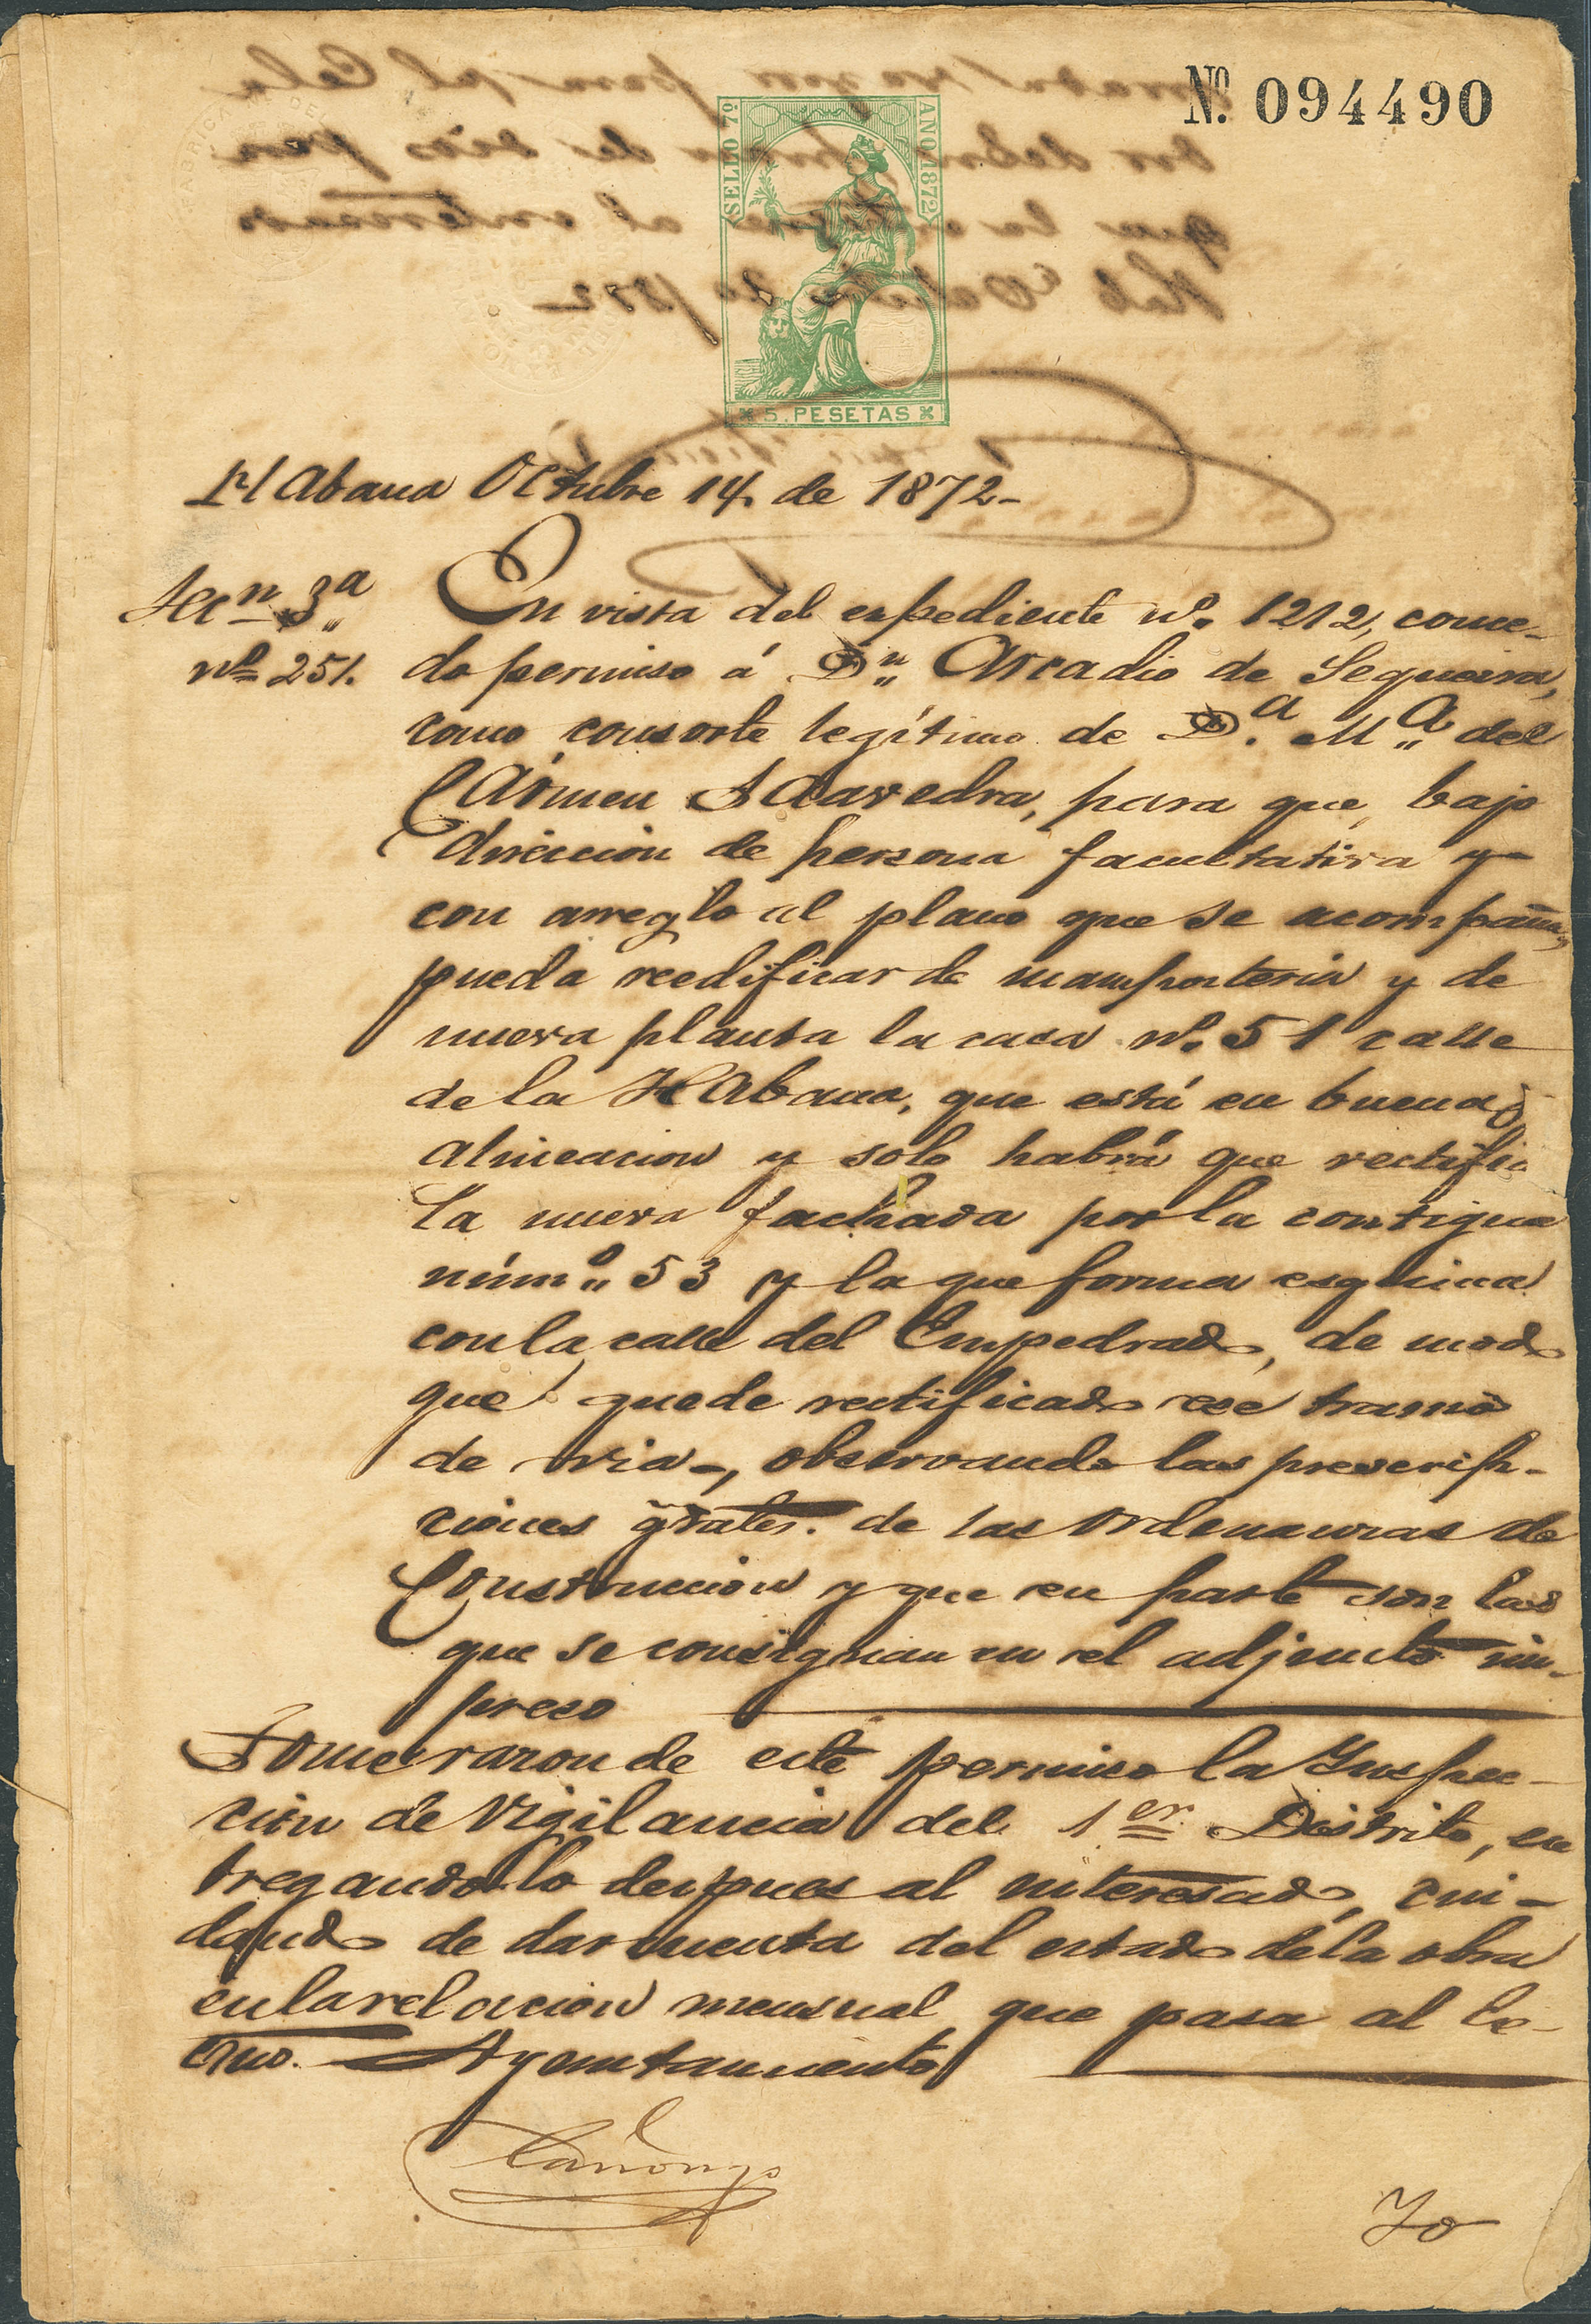 Nº 094490
SELLO 7º
AÑO 1872
5. PESETAS
Habana Octubre 14, de 1872-
Secn 3a
nº 251.
En vista del espediente nº. 1212, conce-
do permiso á Dn Arcadio de Sequeira,
como consorte legítimo de D.a Ma del
Cármen Saavedra, para que, bajo
direccion de persona facultativa y
con arreglo al plano que se acompaña,
pueda reedificar de mamposteria y de
nueva planta la casa nº. 51 calle
de la Habana, que está en buena
alineacion y solo habrá que rectific
la nueva fachada por la contigua
núm.o 53 y la que forma esquina
con la calle del Empedrado, de modo
que quede rectificado ese tramo
de via-, observando las prescrip-
ciones grales. de las Ordenanzas de
Construccion y que en parte son las
que se consignan en el adjunto im-
preso
Tome razon de este permiso la Inspec-
cion de Vigilancia del 1er Distrito, en
tregandolo despues al interesado, cui-
dando de dar cuenta del estado de la obra
en la relacion mensual que pasa al Ex-
cmo. Ayuntamiento